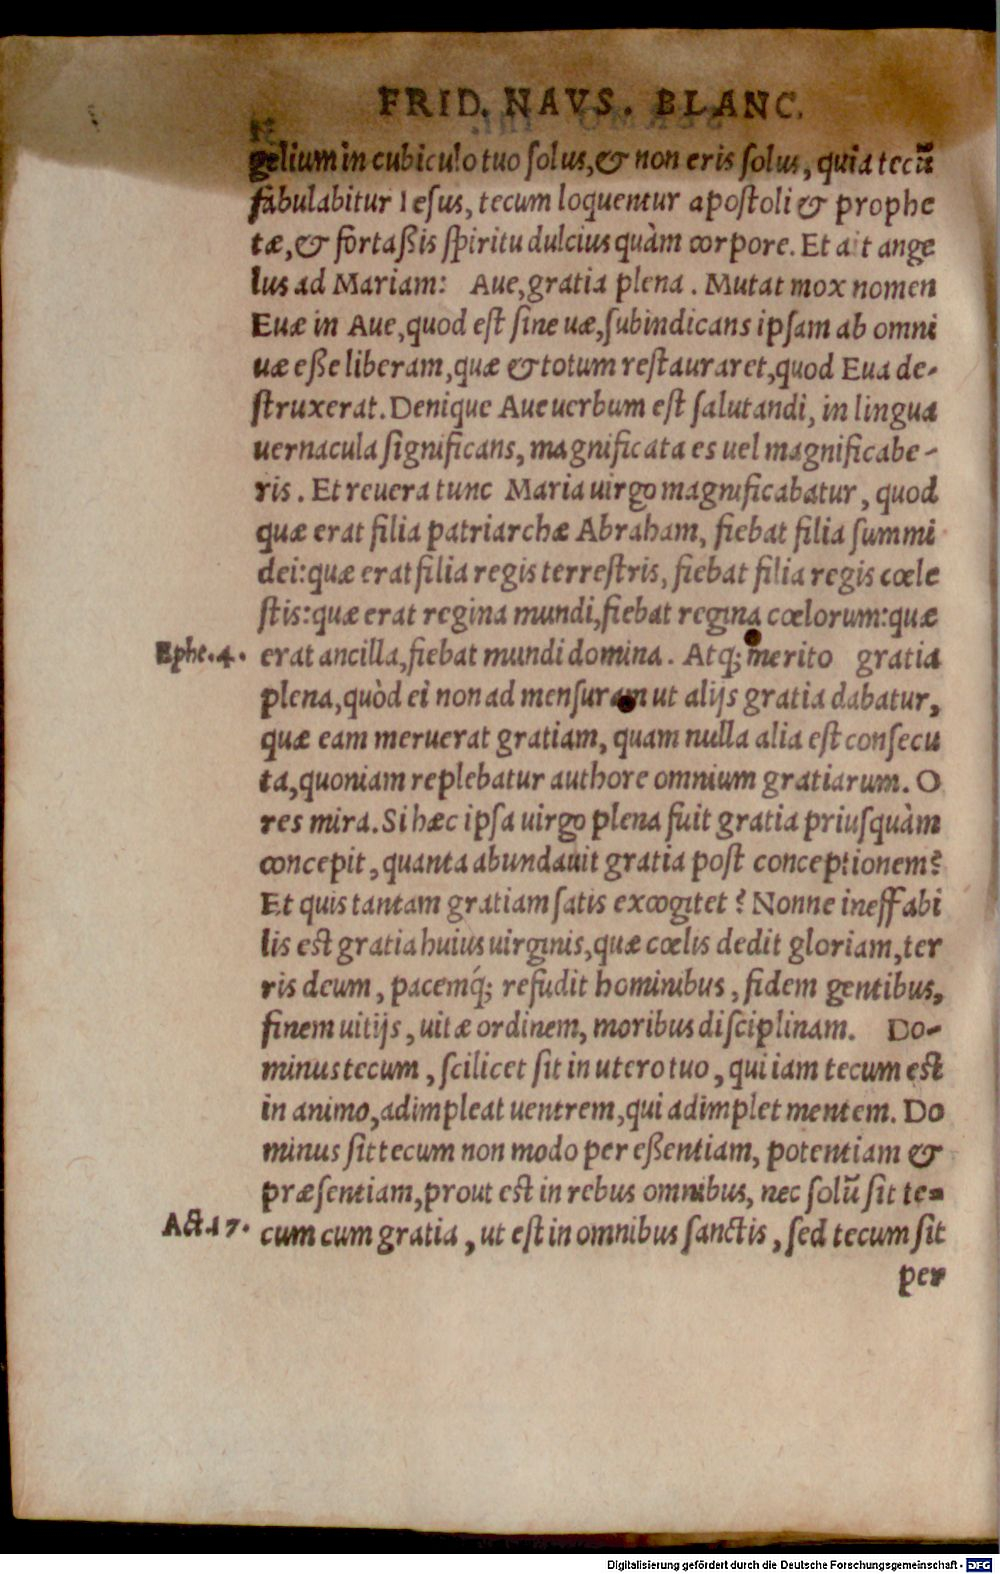 FRID. NAVS. BLANC.
gelium in cubiculo tuo solus, & non eris solus, quia tecū
fabulabitur Iesus, tecum loquentur apostoli & prophe
tæ, & fortaßis spiritu dulcius quàm corpore. Et ait ange
lus ad Mariam: Aue, gratia plena. Mutat mox nomen
Euæ in Aue, quod est sine uæ, subindicans ipsam ab omni
uæ eße liberam, quæ & totum restauraret, quod Eua de-
struxerat. Denique Aue uerbum est salutandi, in lingua
uernacula significans, magnificata es uel magnificabe-
ris. Et reuera tunc Maria uirgo magnificabatur, quod
quæ erat filia patriarchæ Abraham, fiebat filia summi
dei: quæ erat filia regis terrestris, fiebat filia regis cœle
stis: quæ erat regina mundi, fiebat regina cœlorum: quæ
Ephe.4. erat ancilla, fiebat mundi domina. Atq; merito gratia
plena, quòd ei non ad mensuram ut alijs gratia dabatur,
quæ eam meruerat gratiam, quam nulla alia est consecu
ta, quoniam replebatur authore omnium gratiarum. O
res mira. Si hæc ipsa uirgo plena fuit gratia priusquàm
concepit, quanta abundauit gratia post conceptionem?
Et quis tantam gratiam satis excogitet? Nonne ineffabi
lis est gratia huius uirginis, quæ cœlis dedit gloriam, ter
ris deum, pacemq́; refudit hominibus, fidem gentibus,
finem uitijs, uitæ ordinem, moribus disciplinam. Do-
minus tecum, scilicet sit in utero tuo, qui iam tecum est
in animo, adimpleat uentrem, qui adimplet mentem. Do
minus sit tecum non modo per eßentiam, potentiam &
præsentiam, prout est in rebus omnibus, nec solū sit te-
Act.17. cum cum gratia, ut est in omnibus sanctis, sed tecum sit
per
Digitalisierung gefördert durch die Deutsche Forschungsgemeinschaft - DFG